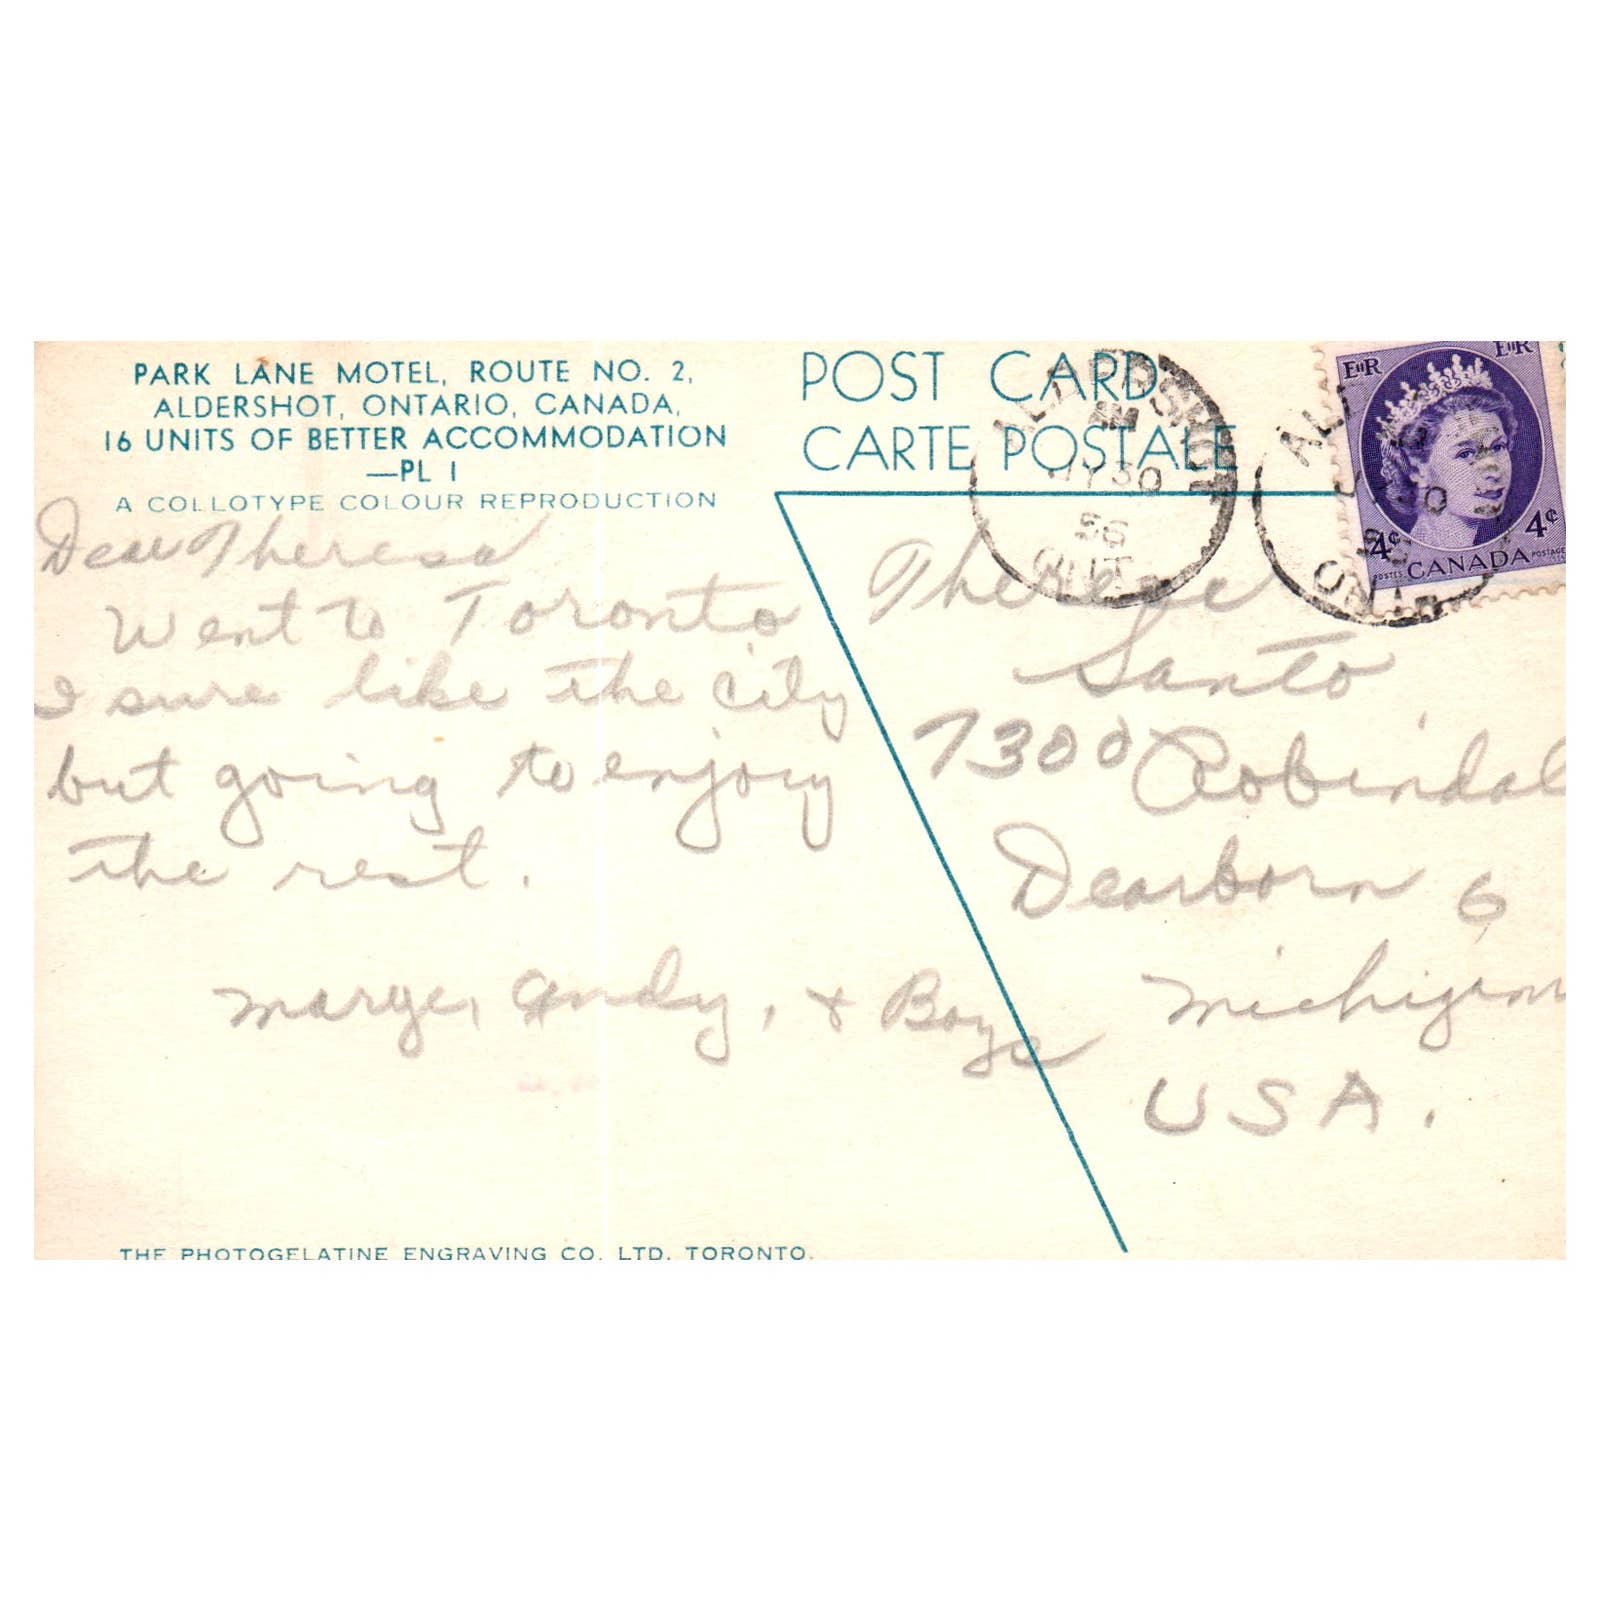 PARK LANE MOTEL, ROUTE NO. 2,
ALDERSHOT, ONTARIO, CANADA,
16 UNITS OF BETTER ACCOMMODATION
—PL 1
A COLLOTYPE COLOUR REPRODUCTION
Dear Theresa
Went to Toronto
I sure like the city
but going to enjoy
the rest.
Marge, Andy, & Boys
THE PHOTOGELATINE ENGRAVING CO. LTD. TORONTO.
POST CARD
CARTE POSTALE
ALDERSHOT
AM
JY 30
56
ONT
EIIR EIIR
4¢ 4¢
POSTES CANADA POSTAGE
Theresa
Santo
7300 Robindal
Dearborn 6,
Michigan
USA.